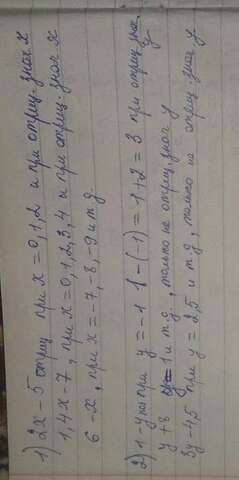 1) 2x-5 отриц при x=0,1,2 и при отриц. знач x
1,4x-7, при x=0,1,2,3,4 и при отриц. знач x
6-x, при x=-7,-8,-9 и т.д.
2) 1-y пол при y=-1 1-(-1)=1+2=3 при отриц знач y
y+8 1 и т.д, только не отриц. знач y
3y-4,5 при y=2,5 и т.д, только не отриц. знач y